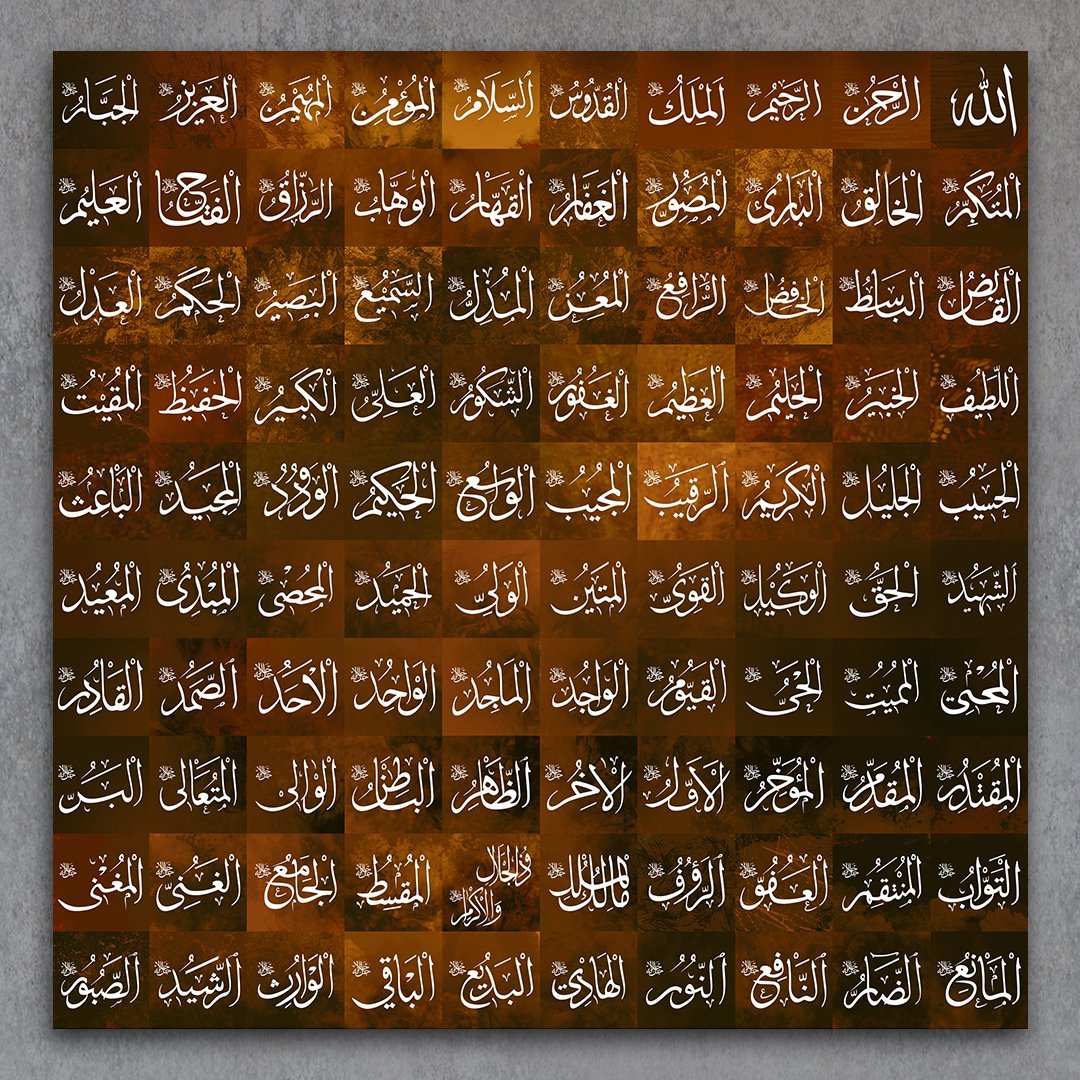 الله الرحمن الرحيم الملك القدوس السلام المؤمن المهيمن العزيز الجبار
المتكبر الخالق البارئ المصور الغفار القهار الوهاب الرزاق الفتاح العليم
القابض الباسط الخافض الرافع المعز المذل السميع البصير الحكم العدل
اللطيف الخبير الحليم العظيم الغفور الشكور العلى الكبير الحفيظ المقيت
الحسيب الجليل الكريم الرقيب المجيب الواسع الحكيم الودود المجيد الباعث
الشهيد الحق الوكيل القوى المتين الولى الحميد المحصى المبدئ المعيد
المحيى المميت الحى القيوم الواجد الماجد الواحد الاحد الصمد القادر
المقتدر المقدم المؤخر الاول الاخر الظاهر الباطن الوالى المتعالى البر
التواب المنتقم العفو الرؤف مالك الملك ذو الجلال والاكرام المقسط الجامع الغنى المغنى
المانع الضار النافع النور الهادى البديع الباقي الوارث الرشيد الصبور